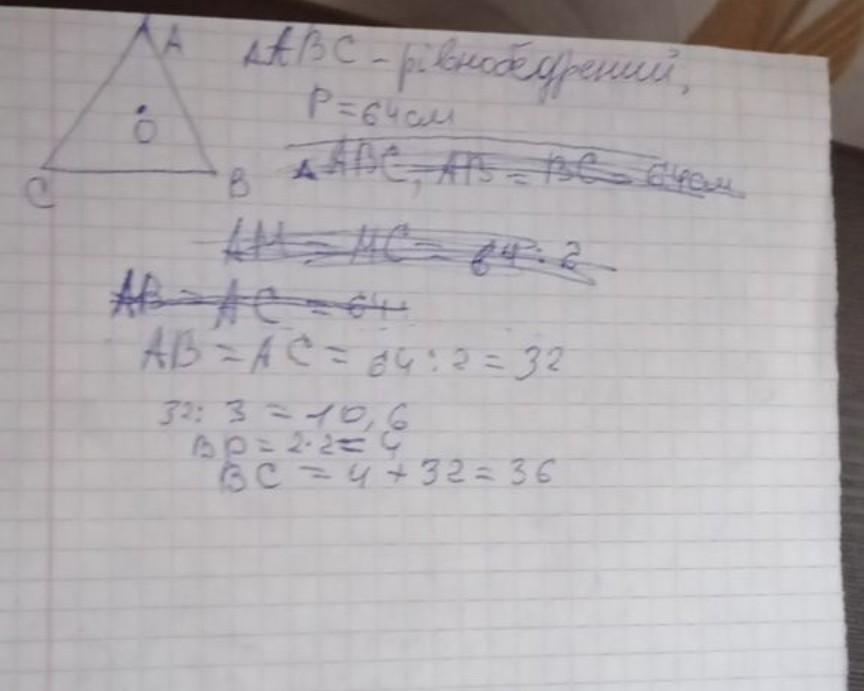 A
O
C
B
△ABC - рівнобедрений,
P = 64см
△ ABC, AB = BC = 64см
AM = MC = 64 : 2
AB = AC = 64
AB = AC = 64 : 2 = 32
32 : 3 = 10,6
BO = 2·2 = 4
BC = 4 + 32 = 36